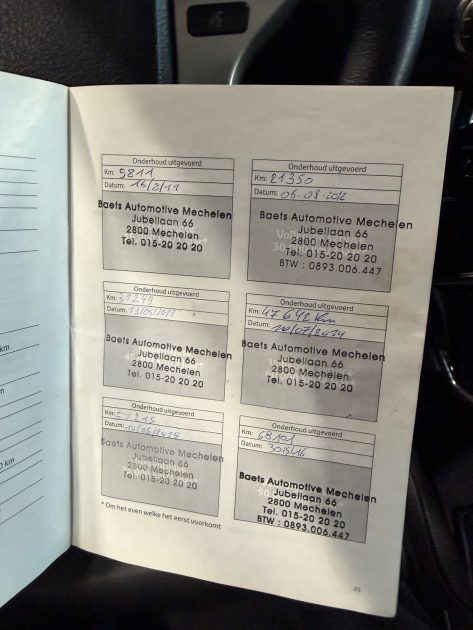 km
m
0 km
Onderhoud uitgevoerd
Km: 9811
Datum: 16/8/11
Baets Automotive Mechelen
Jubellaan 66
2800 Mechelen
Tel. 015-20 20 20
Onderhoud uitgevoerd
Km: 21350
Datum: 06-08-2012
Baets Automotive Mechelen
Jubellaan 66
2800 Mechelen
Tel. 015-20 20 20
BTW : 0893.006.447
Onderhoud uitgevoerd
Km: 31249
Datum: 13/05/2013
Baets Automotive Mechelen
Jubellaan 66
2800 Mechelen
Tel. 015-20 20 20
Onderhoud uitgevoerd
Km: 47642 Km
Datum: 10/07/2014
Baets Automotive Mechelen
Jubellaan 66
2800 Mechelen
Tel. 015-20 20 20
Onderhoud uitgevoerd
Km:
Datum: 10/06/2015
Baets Automotive Mechelen
Jubellaan 66
2800 Mechelen
Tel. 015-20 20 20
Onderhoud uitgevoerd
Km: 68101
Datum: 30/5/16
Baets Automotive Mechelen
Jubellaan 66
2800 Mechelen
Tel. 015-20 20 20
BTW : 0893.006.447
* Om het even welke het eerst voorkomt
25